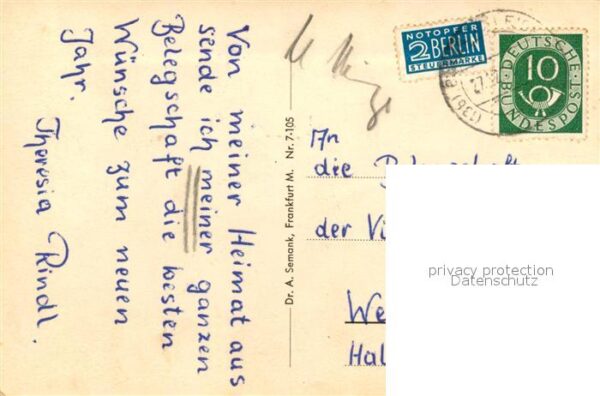 Von meiner Heimat aus
sende ich meiner ganzen
Belegschaft die besten
Wünsche zum neuen
Jahr.
Theresia Rindl.
Dr. A. Semank, Frankfurt M. Nr. 7-105
NOTOPFER
2 BERLIN
STEUERMARKE
DEUTSCHE
10
BUNDESPOST
An
die
der
privacy protection
Datenschutz